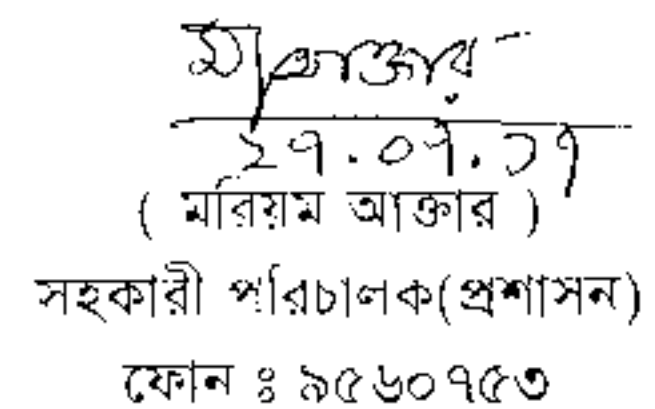 মআক্তার
২৭.০৭.১৭
( মরিয়ম আক্তার )
সহকারী পরিচালক(প্রশাসন)
ফোন ঃ ৯৫৬০৭৫৩